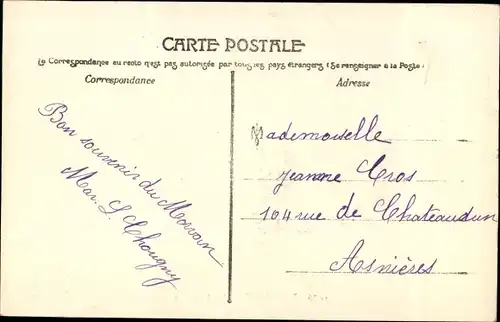 CARTE POSTALE
La Correspondance au recto n'est pas autorisée par tous les pays étrangers (Se renseigner à la Poste)
Correspondance
Adresse
Bon souvenir du Morvan
Mar. L Chougny
Mademoiselle
Jeanne Cros
104 rue de Chateaudun
Asnières